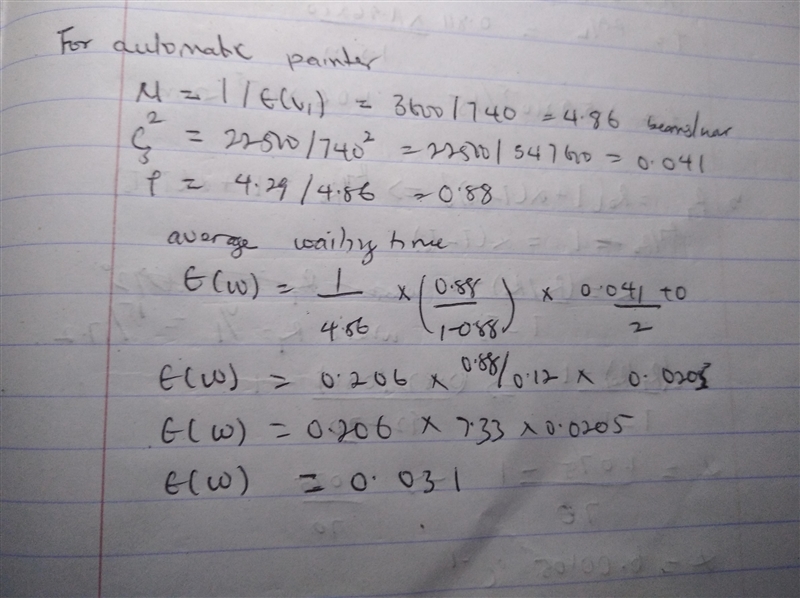 For automatic painter
M = 1 / E(v₁) = 3600 / 740 = 4.86 beams/hour
ς₃² = 22500 / 740² = 22500 / 547600 = 0.041
ρ = 4.29 / 4.86 = 0.88
average waiting time
E(w) = 1/4.86 × (0.88/1-0.88) × 0.041 + 0/2
E(w) = 0.206 × 0.88/0.12 × 0.0205
E(w) = 0.206 × 7.33 × 0.0205
E(w) = 0.031